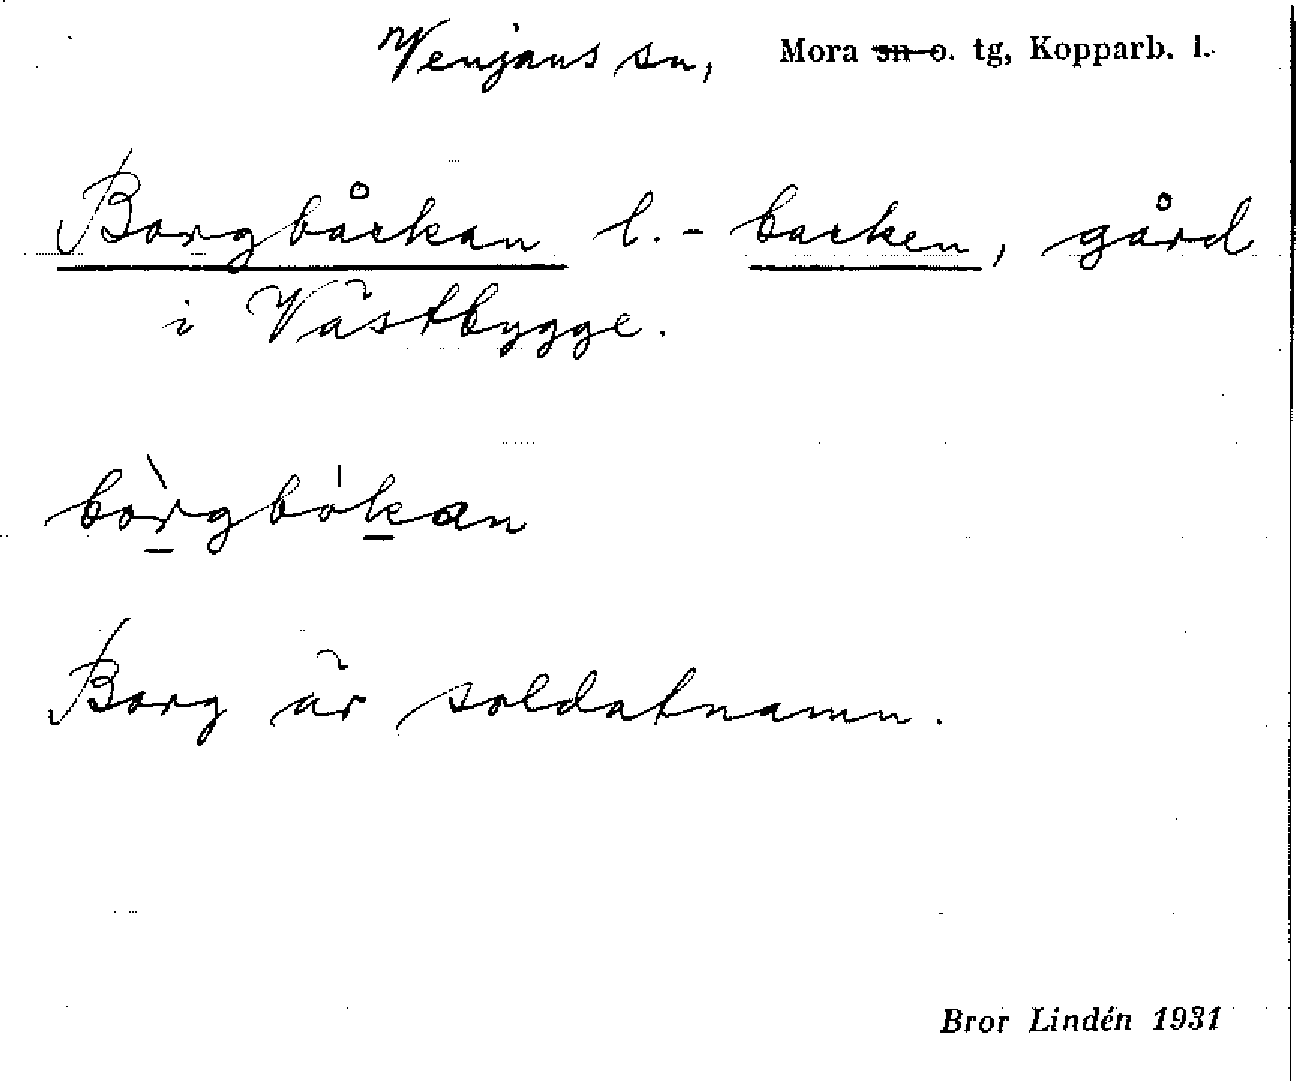 Venjans sn, Mora sn o. tg, Kopparb. l.
Borgbåckan l. - backen, gård
i Västbygge.
bòrgbókan
Borg är soldatnamn.
Bror Lindén 1931